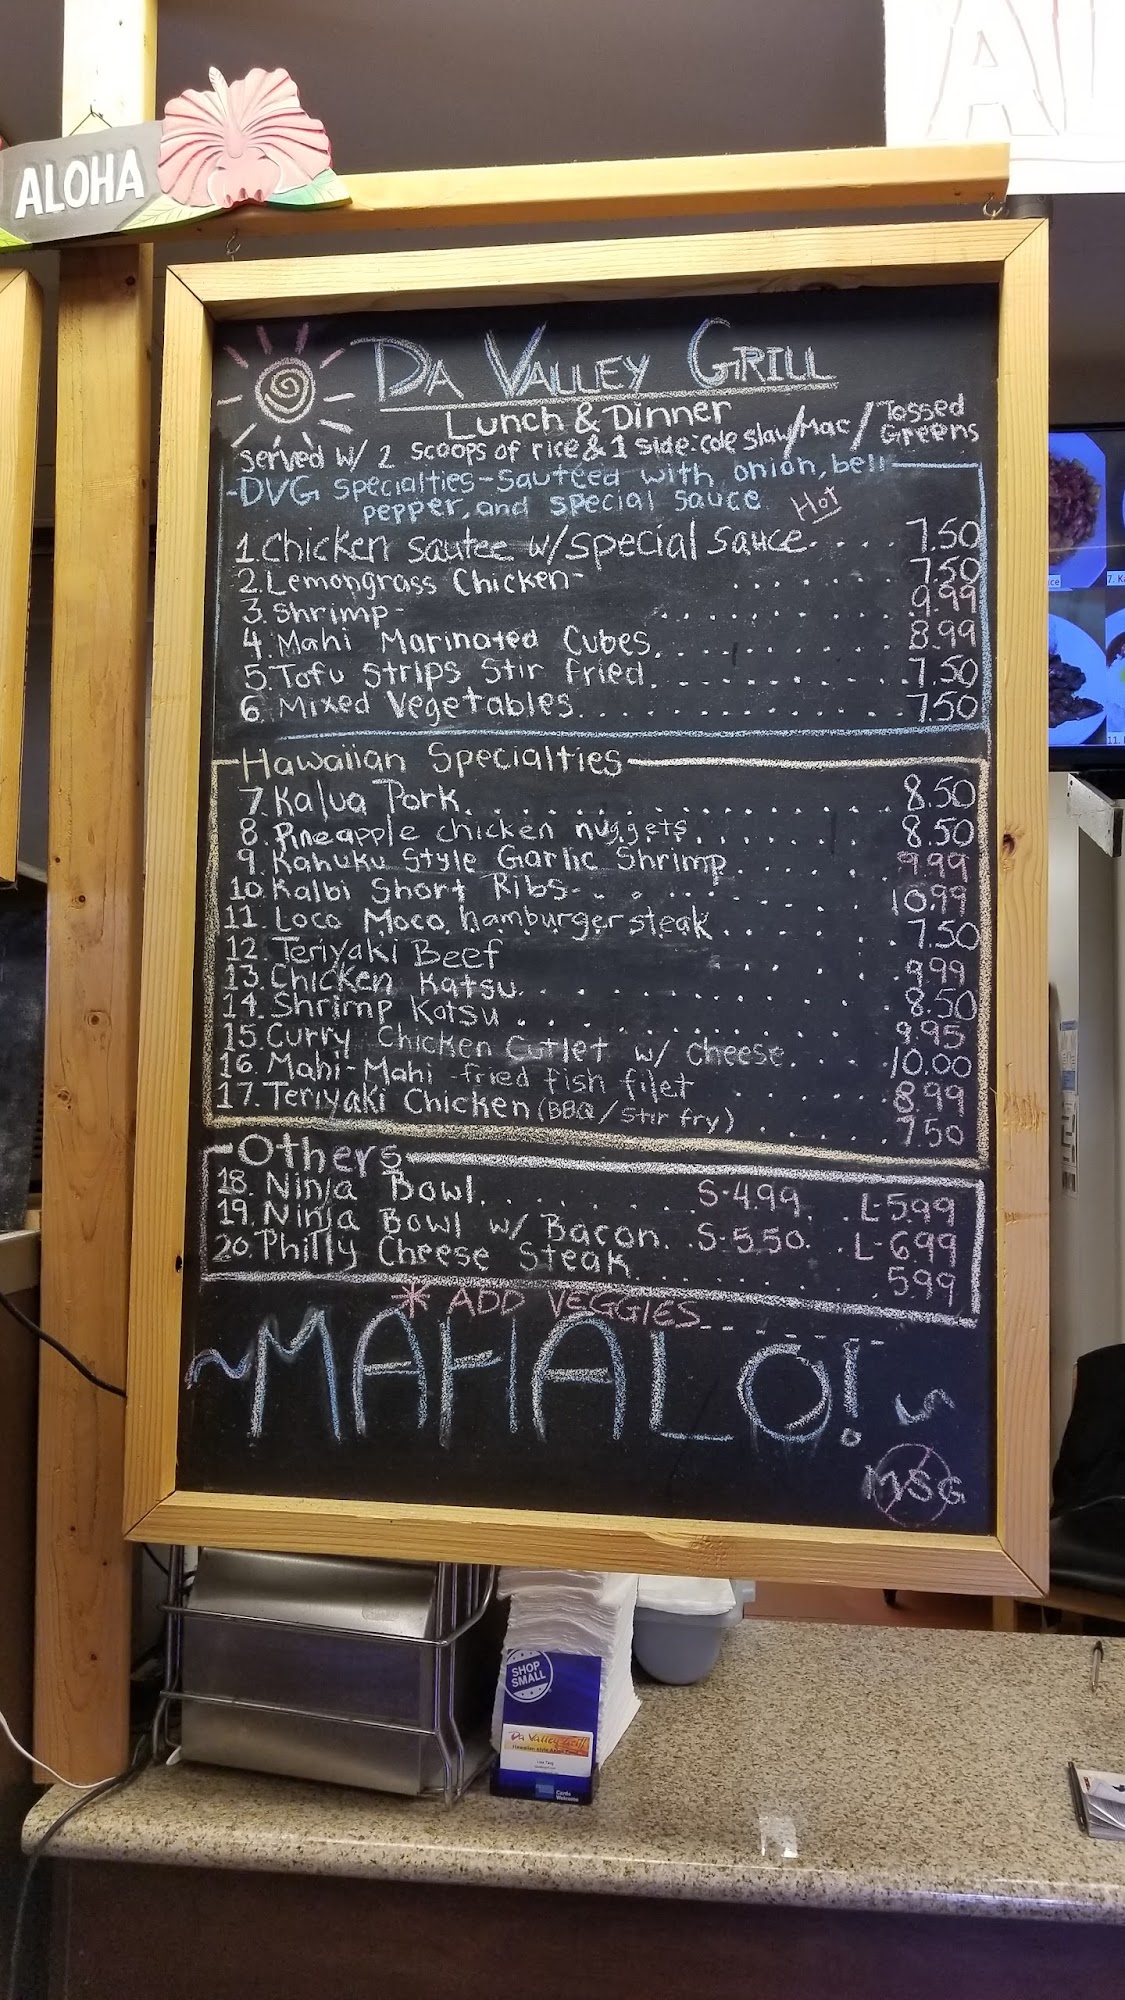 ALOHA
DA VALLEY GRILL
Lunch & Dinner
Served w/ 2 scoops of rice & 1 side: cole slaw/Mac/Tossed Greens
-DVG specialties-Sauteed with onion, bell
pepper, and special sauce
Hot
1. Chicken sautee w/special sauce.... 7.50
2. Lemongrass Chicken- ........ 7.50
3. Shrimp- ........ 9.99
4. Mahi Marinated Cubes........ 8.99
5. Tofu Strips Stir Fried........ 7.50
6. Mixed Vegetables........ 7.50
Hawaiian Specialties
7. Kalua Pork........ 8.50
8. Pineapple chicken nuggets........ 8.50
9. Kahuku Style Garlic Shrimp........ 9.99
10. Kalbi Short Ribs-........ 10.99
11. Loco Moco hamburger steak........ 7.50
12. Teriyaki Beef ........ 9.99
13. Chicken Katsu........ 8.50
14. Shrimp Katsu ........ 9.95
15. Curry Chicken Cutlet w/ cheese.... 10.00
16. Mahi-Mahi -fried fish filet ........ 8.99
17. Teriyaki Chicken (BBQ/Stir fry) ..... 7.50
Others
18. Ninja Bowl........ S-4.99 ..L-5.99
19. Ninja Bowl w/ Bacon...S-5.50...L-6.99
20. Philly Cheese Steak........ 5.99
* ADD VEGGIES
~MAHALO!~
MSG
SHOP
SMALL
Da Valley Grill
Cards
Welcome